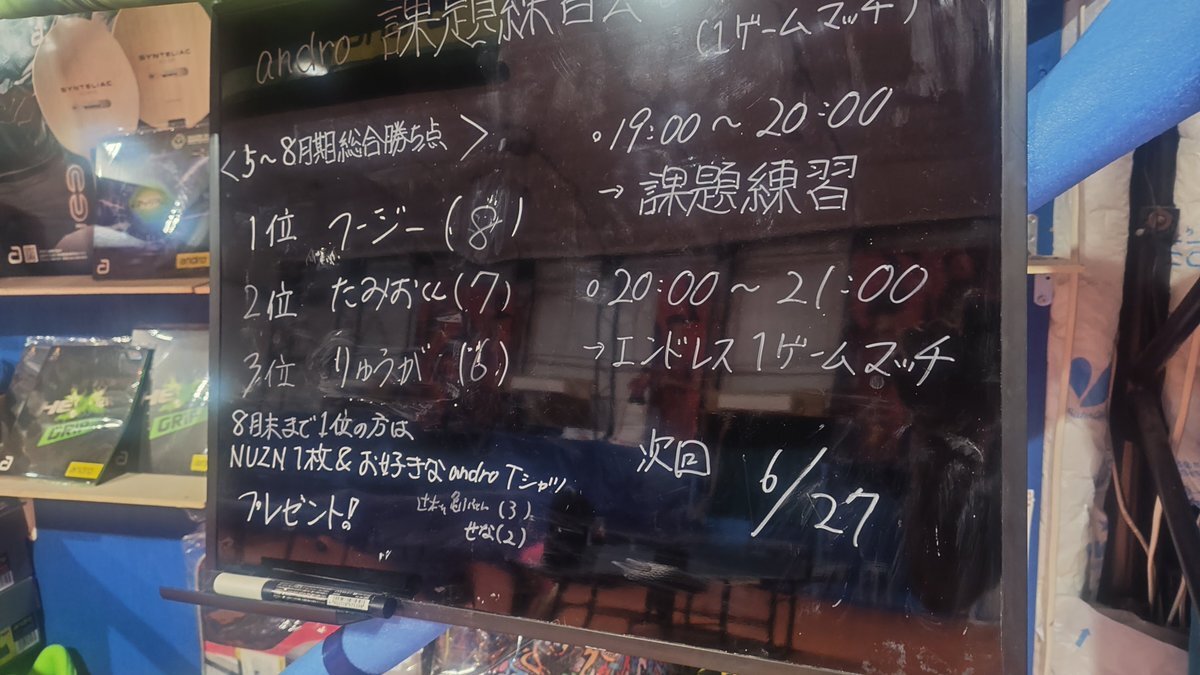 andro 課題練習会
(1ゲームマッチ)
<5~8月期総合勝ち点>
1位 フージー (8)
2位 たみおくん (7)
3位 りゅうが (6)
8月末まで1位の方は
NUZN 1枚 & お好きな andro Tシャツ
プレゼント!
(3)
せな (2)
○19:00~20:00
→課題練習
○20:00~21:00
→エンドレス1ゲームマッチ
次回 6/27
SYNTELIAC
SYNTELIAC
andro
HEXER
GRIP
andro